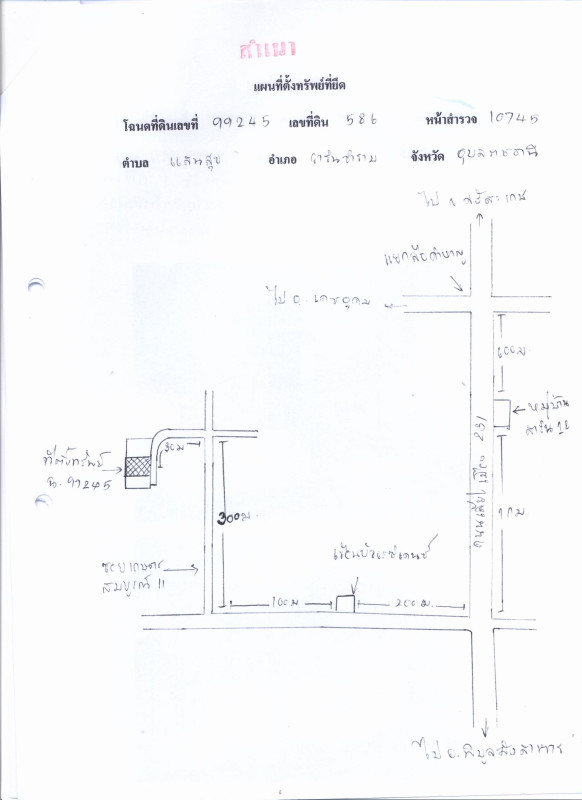 สำเนา
แผนที่ตั้งทรัพย์ที่ยึด
โฉนดที่ดินเลขที่ 99245 เลขที่ดิน 586 หน้าสำรวจ 10745
ตำบล แสนสุข อำเภอ วารินชำราบ จังหวัด อุบลราชธานี
ไป จ. ศรีสะเกษ
แยกลือคำหาญ
ไป อ. เดชอุดม
600ม
หมู่บ้าน
ถนนเลี่ยงเมือง 231
1 กม
ที่ตั้งทรัพย์
ฉ. 99245
30ม
300ม
ซอยเกษตร
สมบูรณ์ 11
100ม
200ม.
ไป อ. พิบูลมังสาหาร